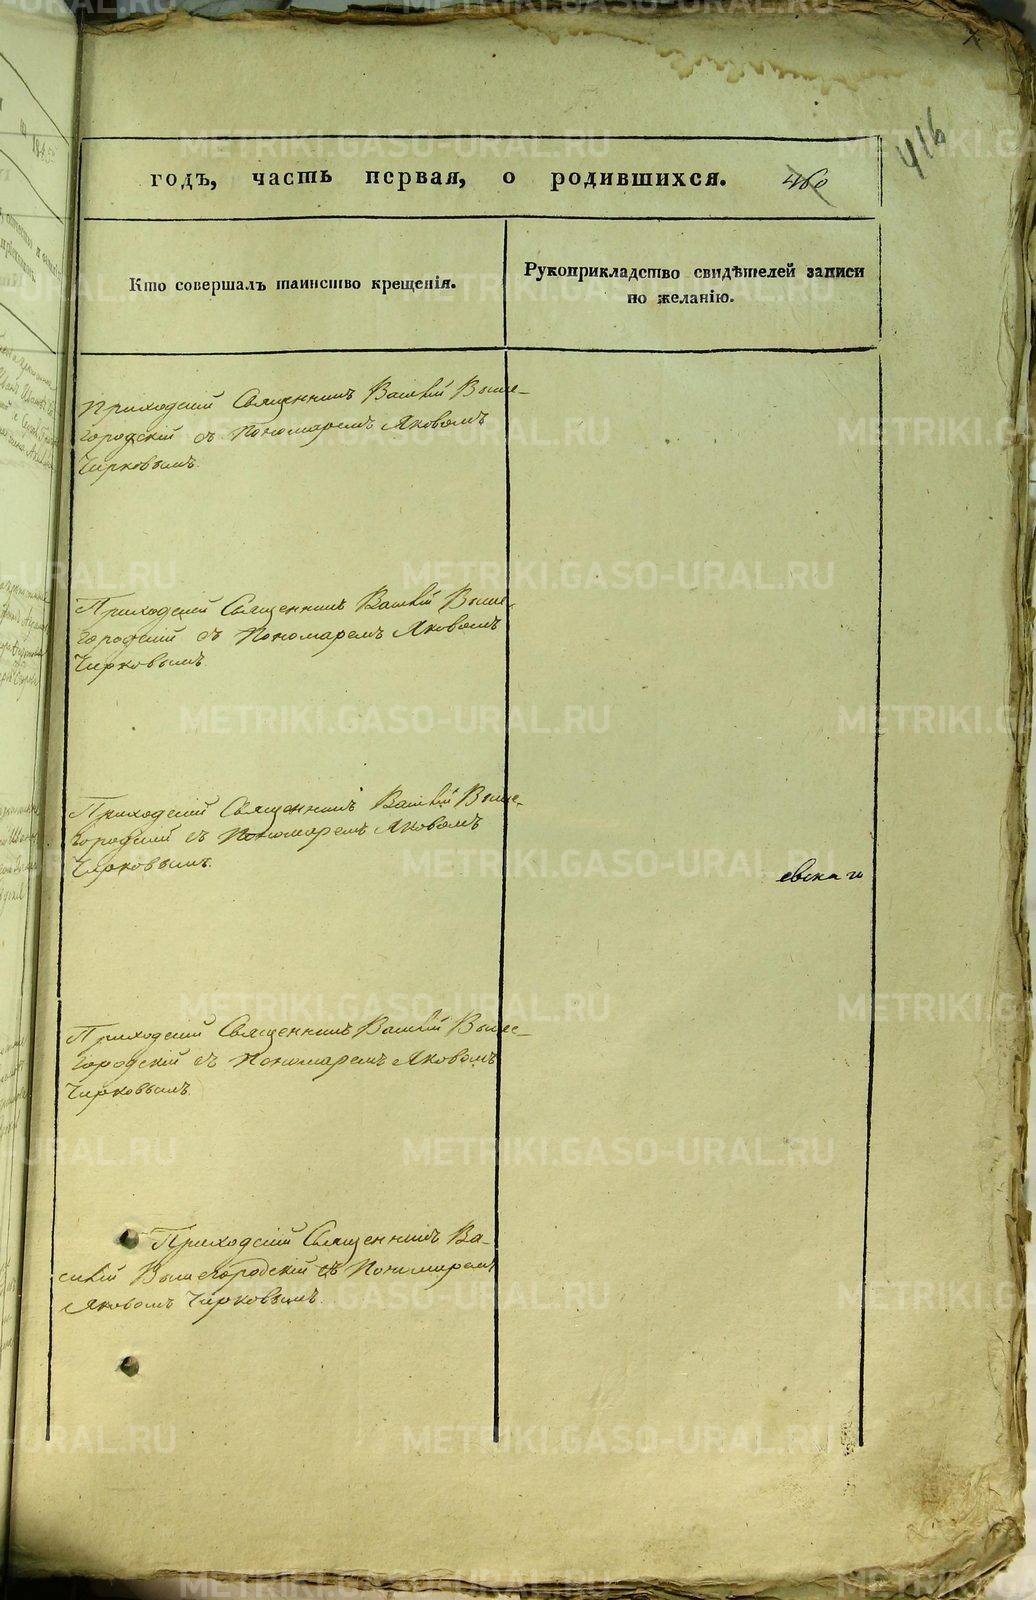 416
годъ, часть первая, о родившихся. 460
Кто совершалъ таинство крещенія.
Рукоприкладство свидѣтелей записи
по желанію.
Приходскій Священникъ Василій Выше-
городскій съ Пономаремъ Яковомъ
Чирковымъ.
Приходскій Священникъ Василій Выше-
городскій съ Пономаремъ Яковомъ
Чирковымъ
Приходскій Священникъ Василій Выше-
городскій съ Пономаремъ Яковомъ
Чирковымъ.
евскаго
Приходскій Священникъ Василій Выше-
городскій съ Пономаремъ Яковомъ
Чирковымъ.
Приходскій Священникъ Ва-
силій Вышегородскій съ Пономаремъ
Яковомъ Чирковымъ.
METRIKI.GASO-URAL.RU